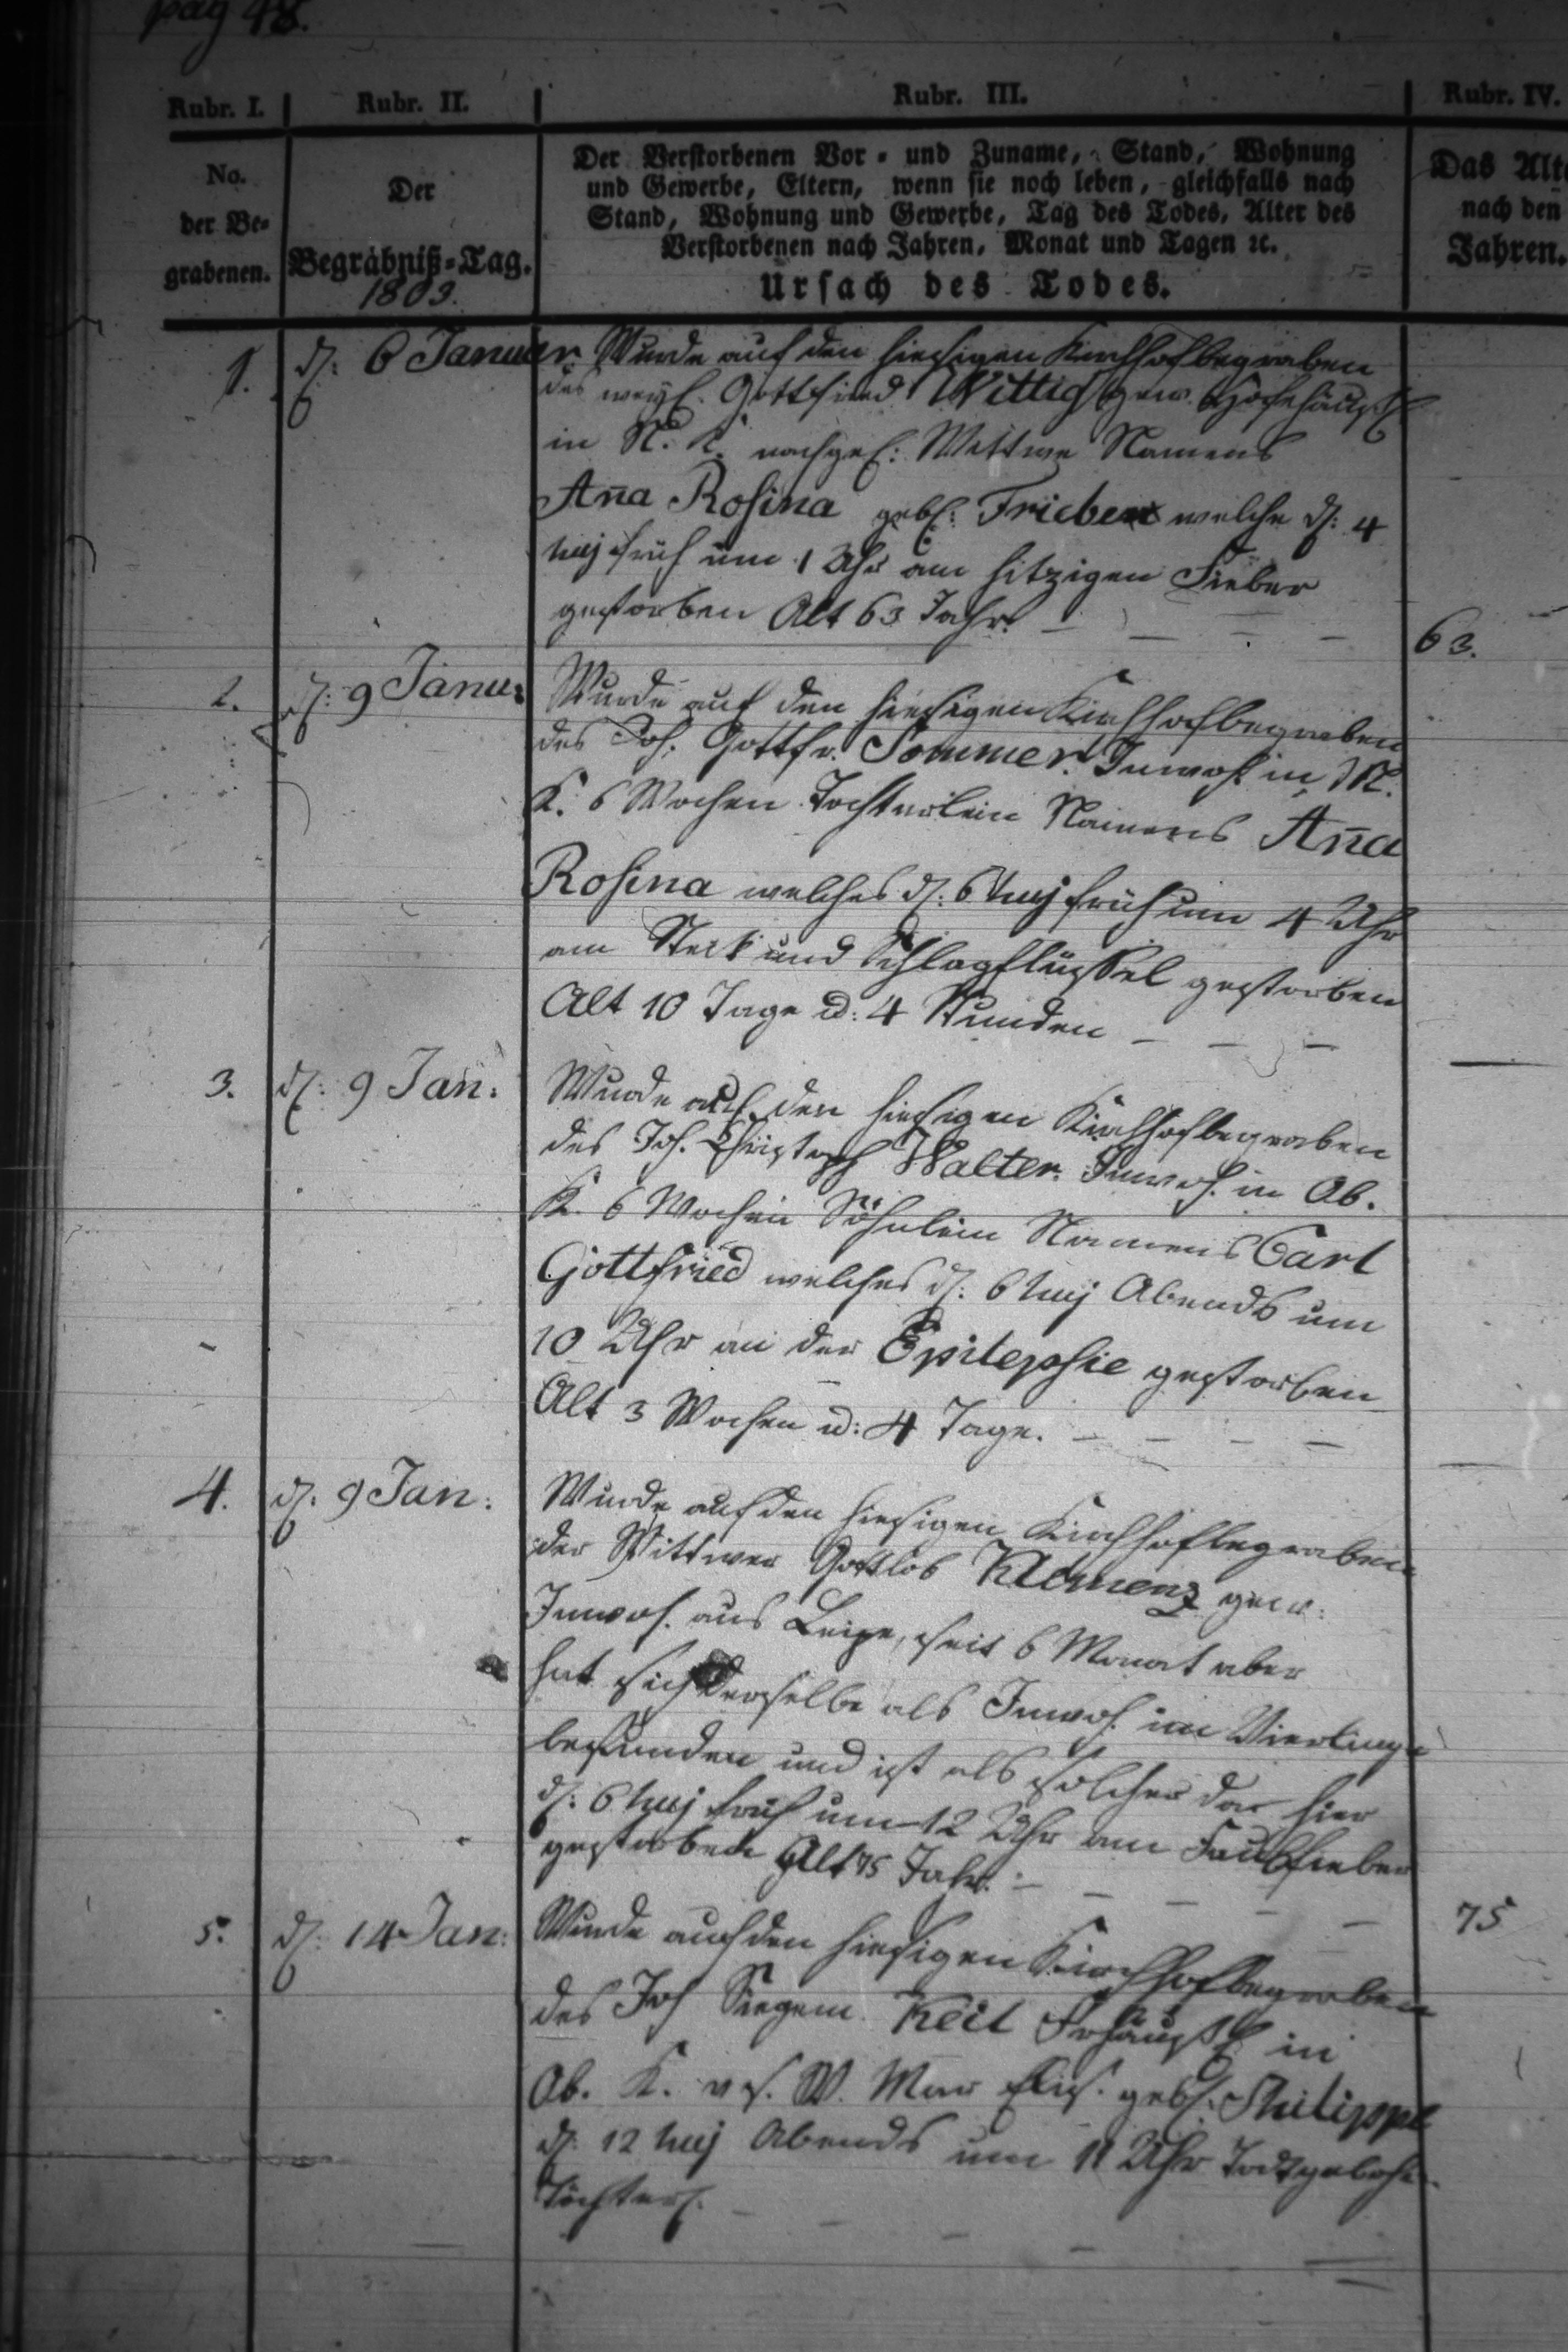 pag 48.
Rubr. I. Rubr. II. Rubr. III. Rubr. IV.
No. der Be- grabenen.
Der Begräbniß-Tag. 1803.
Der Verstorbenen Vor- und Zuname, Stand, Wohnung
und Gewerbe, Eltern, wenn sie noch leben, gleichfalls nach
Stand, Wohnung und Gewerbe, Tag des Todes, Alter des
Verstorbenen nach Jahren, Monat und Tagen ꝛc.
Ursach des Todes.
Das Alte
nach den
Jahren.
1. d. 6 Januar Wurde auf den hiesigen Kirchhof begraben
des weyl. Gottfried Wittig gew. Hofehäusl.
in N. K. nachgel: Wittwe Namens
Aña Rosina gebl: Frieben welche d: 4
huj früh um 1 Uhr am hitzigen Fieber
gestorben Alt 63 Jahr. 63.
2. d: 9 Janu: Wurde auf den hiesigen Kirchhof begraben
des Joh. Gottfr. Sommer. Inwoh. in N.
K. 6 Wochen Töchterlein Namens Aña
Rosina welches d: 6 huj früh um 4 Uhr
am Steck und Schlagflüssel gestorben
Alt 10 Tage u: 4 Stunden
3. d: 9 Jan: Wurde auf den hiesigen Kirchhof begraben
des Joh. Christoph Walter. Inwoh. in Ob.
K. 6 Wochen Söhnlein Namens Carl
Gottfried welches d: 6 huj Abends um
10 Uhr an der Epilepsie gestorben
Alt 3 Wochen u: 4 Tage.
4. d: 9 Jan: Wurde auf den hiesigen Kirchhof begraben
der Wittwer Gottlob Klemenz gew:
Inwoh. aus Leipe, seit 6 Monat aber
hat sich derselbe als Inwoh. im
befunden und ist als solcher hier
d: 6 huj früh um 12 Uhr am Faulfieber
gestorben Alt 75 Jahr. 75
5. d: 14 Jan: Wurde auf den hiesigen Kirchhof begraben
des Joh Siegem. Keil Frhäusl. in
Ob. K. v s. W. Mar Elis. gebl. Philippe
d: 12 huj Abends um 11 Uhr Todtgebohr.
Töchterl.